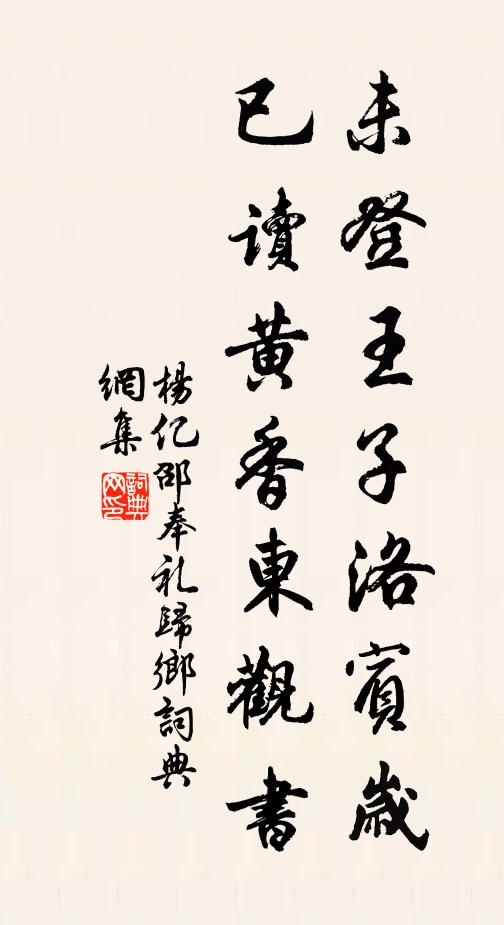 未登王子洛賓歲
已讀黄香東觀書
楊亿邵奉礼歸鄉詞典
網集
詞典网印